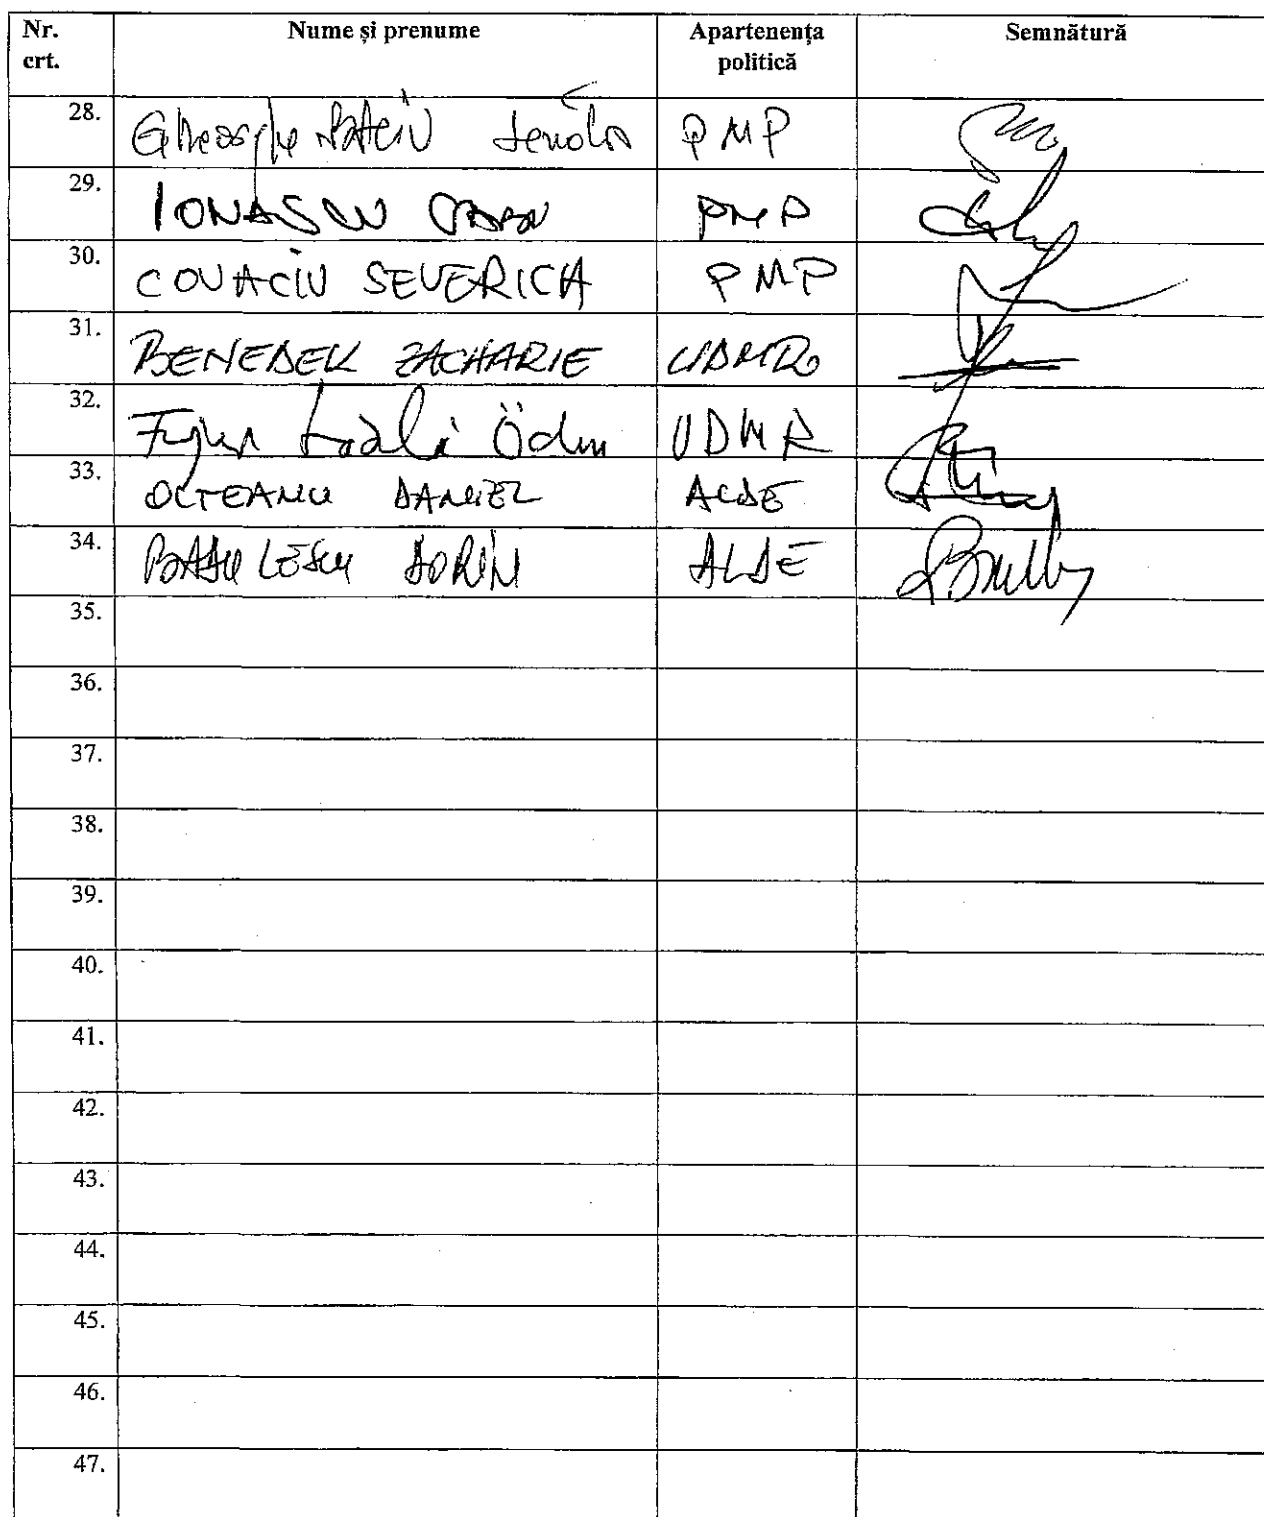 Nr. crt. Nume și prenume Apartenența politică Semnătură
28. Gheorghe PMP
29. IONASCU PMP
30. COVACIU SEVERICA PMP
31. BENEDEK ZACHARIE UDMR
32. Ödön UDMR
33. OLTEANU DANIEL ALDE
34. SORIN ALDE
35.
36.
37.
38.
39.
40.
41.
42.
43.
44.
45.
46.
47.